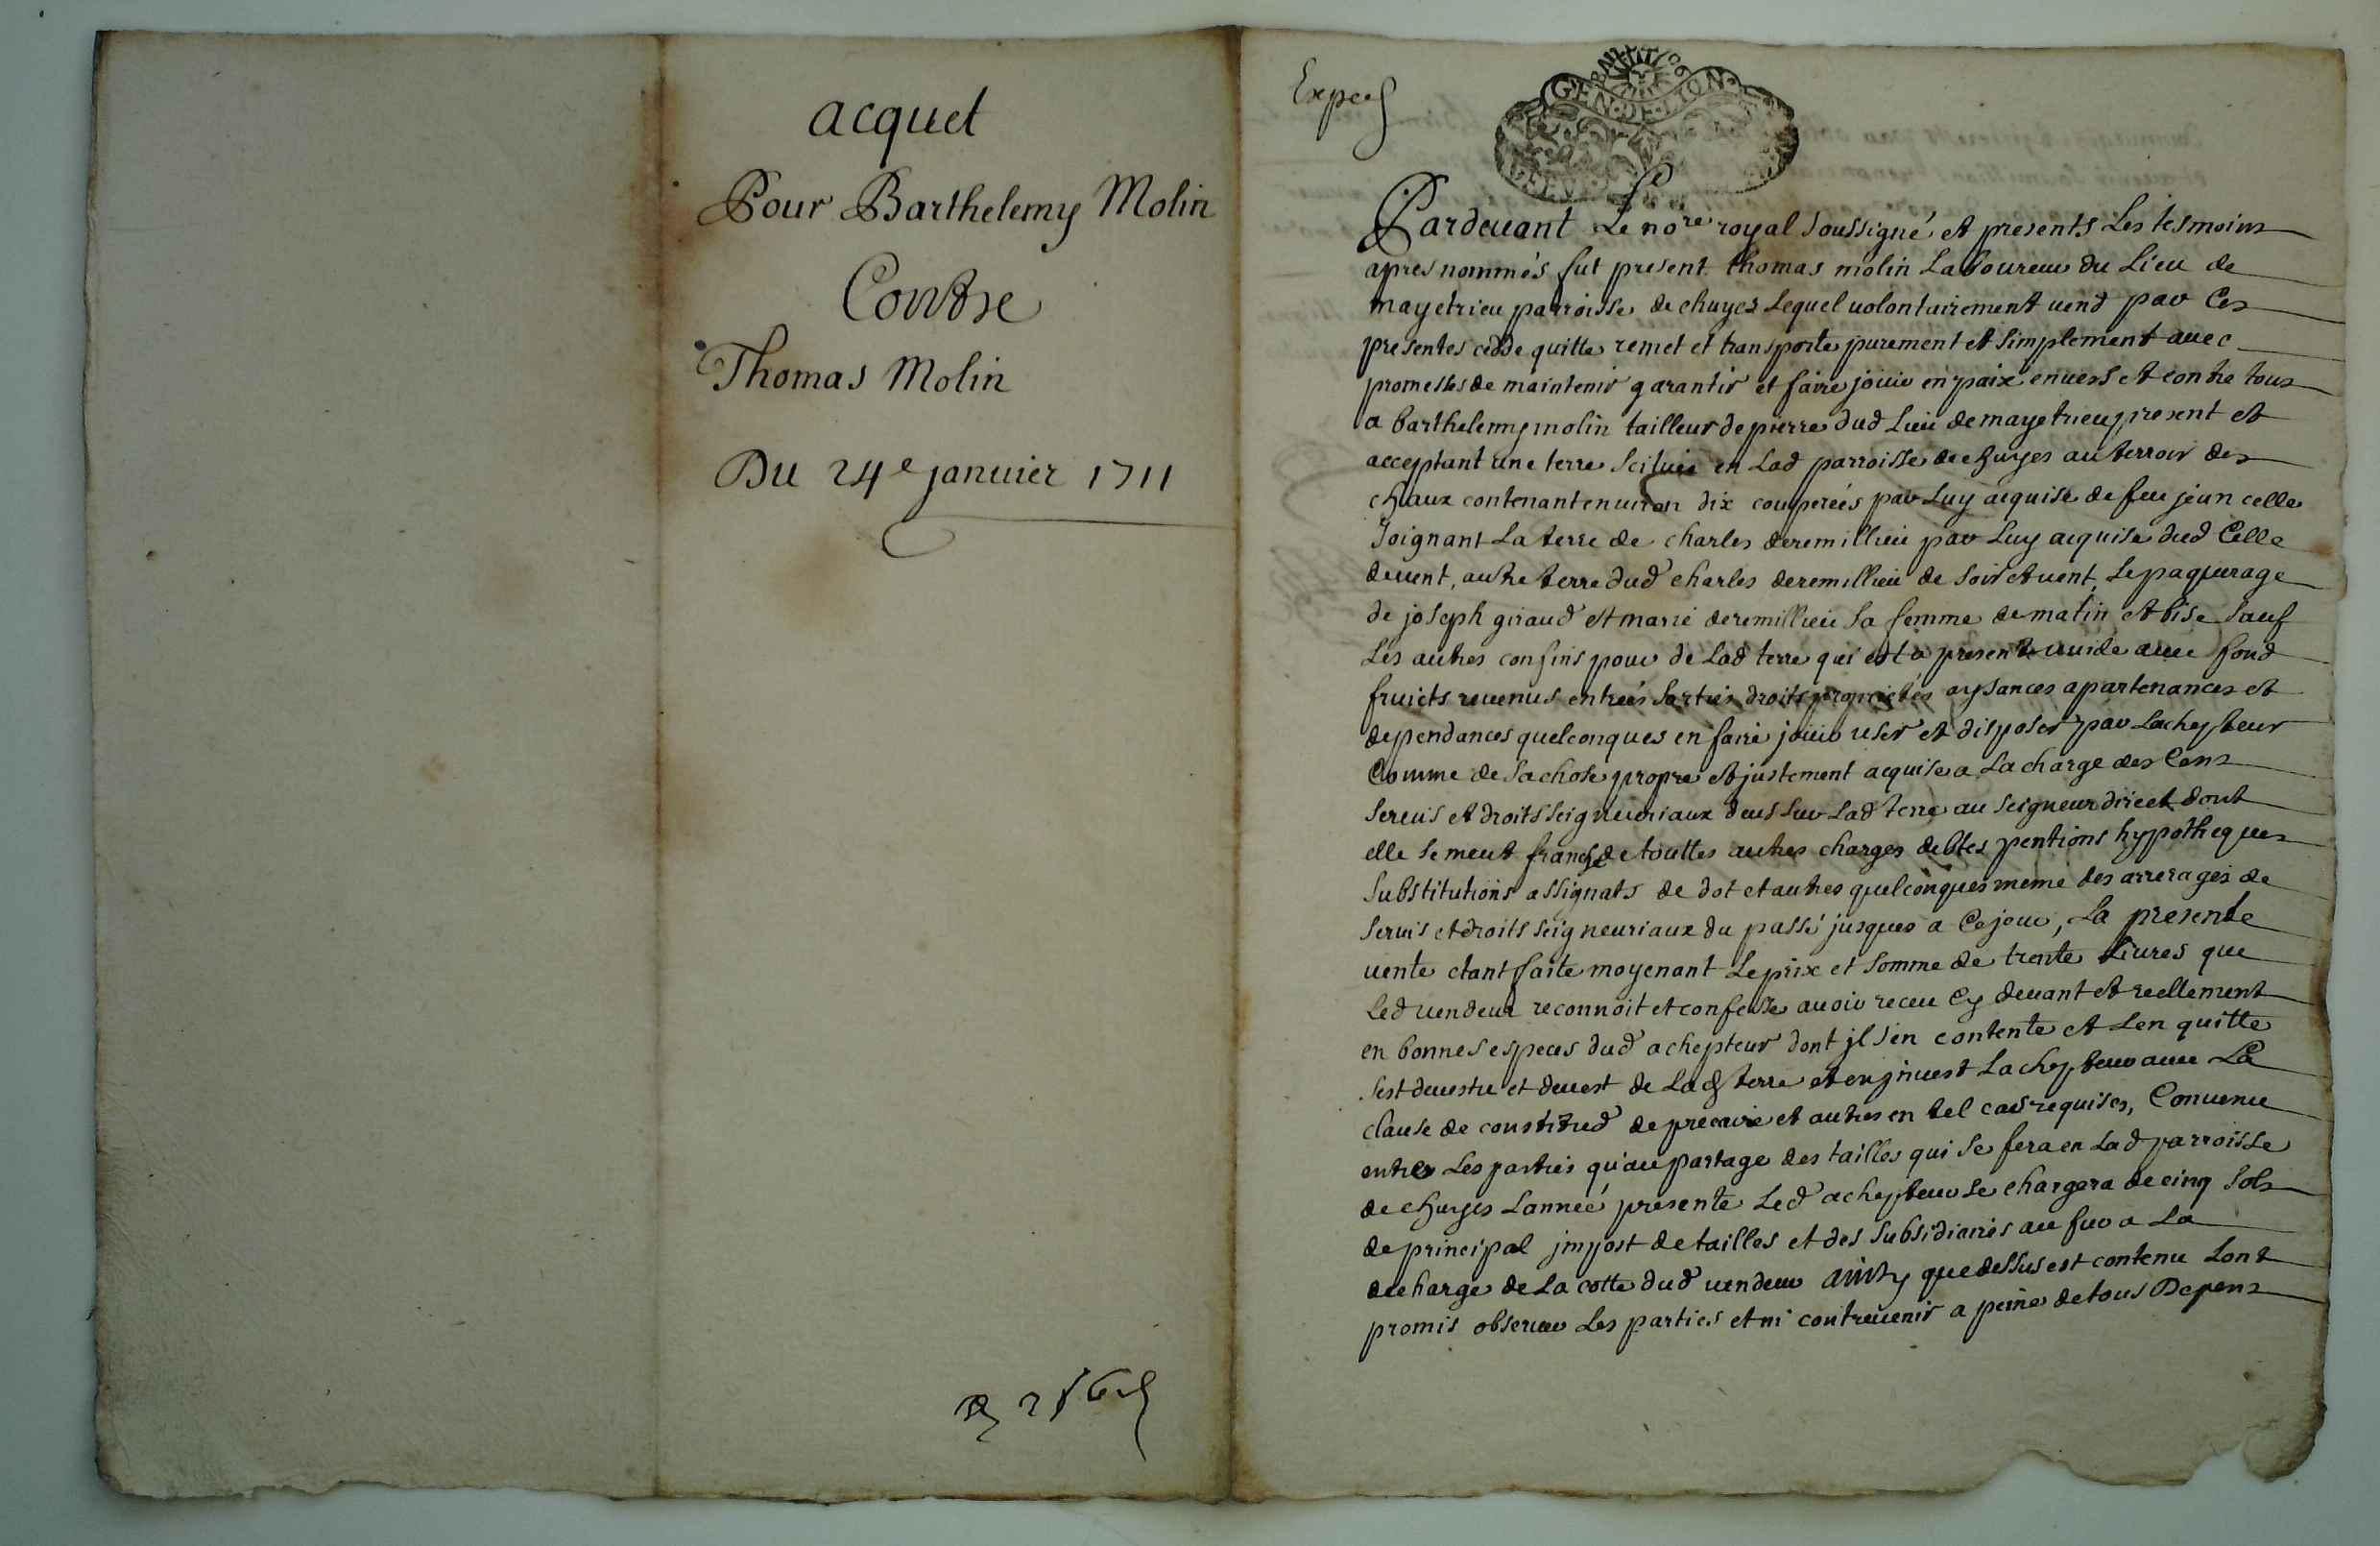 acquet
Pour Barthelemy Molin
Contre
Thomas Molin
Du 24e januier 1711
GEN DE LION
Pardeuant Le nore royal soussigné et presents Les tesmoins
apres nommés fut present thomas molin Laboureur du Lieu de
mayetrieu parroisse de chuyes Lequel uolontairement uend par Ces
presentes cedde quitte remet et transporte purement et simplement auec
promesses de maintenir garantir et faire jouir en paix enuers et contre tous
a barthelemy molin tailleur de pierre dud Lieu de mayetrieu present et
acceptant une terre scituée en Lad parroisse de chuyes au terroir des
chaux contenant enuiron dix couperées par Luy acquise de feu jean celle
Joignant La terre de charles deremillieu par Luy acquise dud Celle
deuent, autre terre dud charles deremillieu de soir et uent, Le paquerage
de joseph giraud et marie deremillieu sa femme de matin et bise sauf
Les autres confins pour de Lad terre qui est a present uuide auec fond
fruicts reuenus entrées sorties droits proprietés aysances apartenances et
dependances quelconques en faire jouir user et disposer par Lachepteur
Comme de sa chose propre et justement acquise a La charge des Cens
seruis et droits seigneuriaux deus sur Lad terre au seigneur direct dont
elle se meut franche de touttes autres charges debtes pentions hypotheques
substitutions assignats de dot et autres quelconques meme des arrerages de
seruis et droits seigneuriaux du passé jusques a Cejour, La presente
uente etant faite moyenant Le prix et somme de trente Liures que
Led uendeur reconnoit et confesse auoir receu Cy deuant et reellement
en bonnes especes dud achepteur dont jl s'en contente et L'en quitte
sest deuestu et deuest de Lad terre et en jnuest Lachepteur auec La
clause de constitud de precaire et autres en tel cas requises, Conuenu
entre Les parties qu'au partage des tailles qui se fera en Lad parroisse
de chuyes Lannée presente Led achepteur se chargera de cinq sols
de principal jmpost de tailles et des subsidiaires au fur a La
decharge de La cotte dud uendeur ainsy que dessus est contenu Lont
promis obseruer Les parties et ni contreuenir a peine de tous Depens